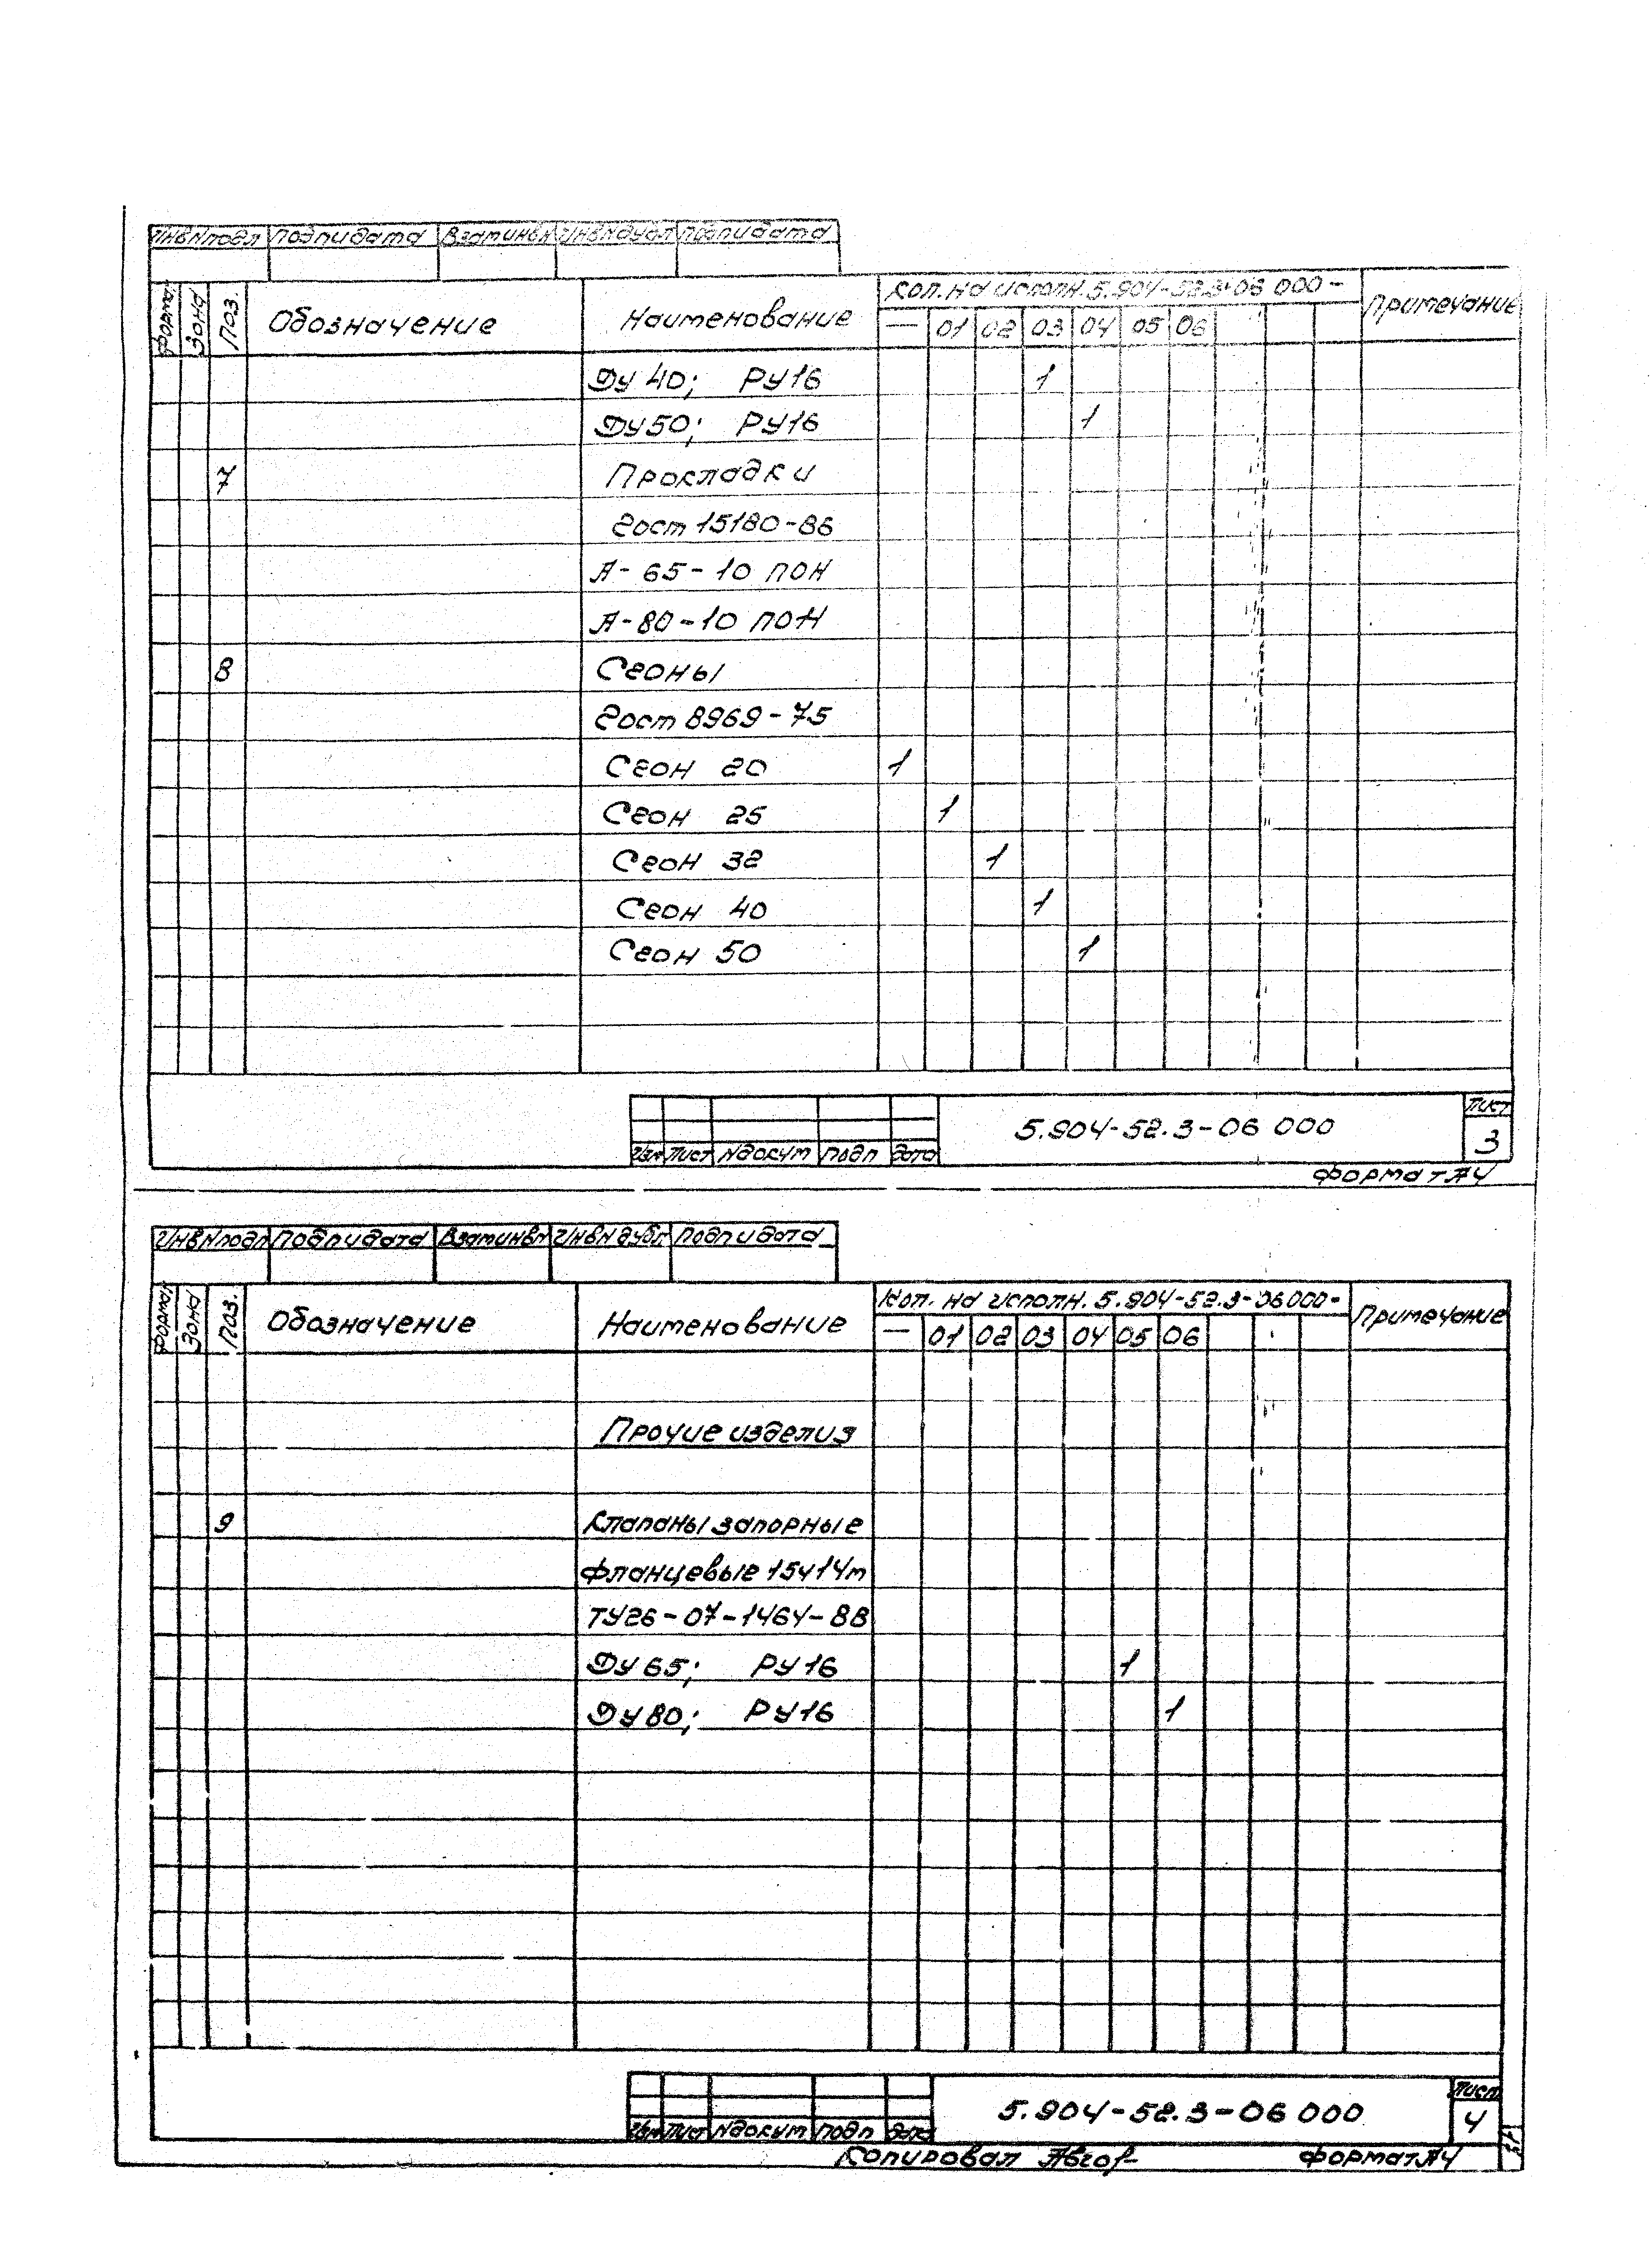 Инв N подл Подп и дата Взам инв N Инв N дубл Подп и дата
Формат Зона Поз. Обозначение Наименование Кол. на исполн. 5.904-52.3-06 000 - Примечание
— 01 02 03 04 05 06
Ду 40; Ру 16 1
Ду 50; Ру 16 1
7 Прокладки
Гост 15180-86
А-65-10 ПОН
А-80-10 ПОН
8 Сгоны
Гост 8969-75
Сгон 20 1
Сгон 25 1
Сгон 32 1
Сгон 40 1
Сгон 50 1
Изм Лист N докум Подп Дата 5.904-52.3-06 000 Лист 3
Формат А4
Инв N подл Подп и дата Взам инв N Инв N дубл Подп и дата
Формат Зона Поз. Обозначение Наименование Кол. на исполн. 5.904-52.3-06 000 - Примечание
— 01 02 03 04 05 06
Прочие изделия
9 Клапаны запорные
фланцевые 15ч14п
ТУ26-07-1464-88
Ду 65; Ру 16 1
Ду 80; Ру 16 1
Изм Лист N докум Подп Дата 5.904-52.3-06 000 Лист 4
Копировал Формат А4